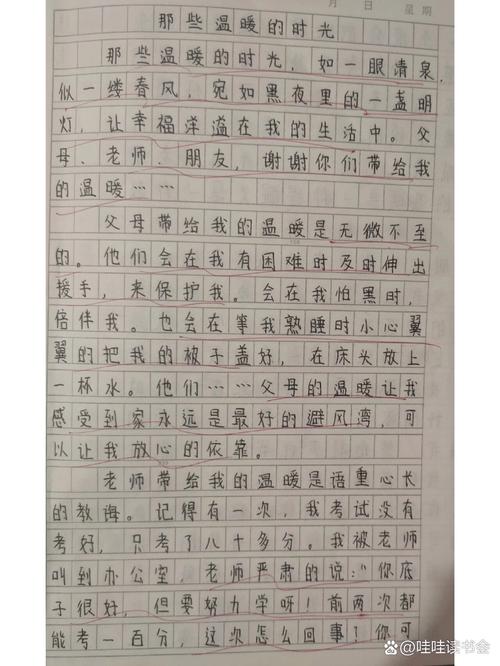 月 日 星期
那些温暖的时光
那些温暖的时光，如一眼清泉，
似一缕春风，宛如黑夜里的一盏明
灯，让幸福洋溢在我的生活中。父
母、老师、朋友，谢谢你们带给我
的温暖……
父母带给我的温暖是无微不至
的。他们会在我有困难时及时伸出
援手，来保护我。会在我怕黑时，
倍伴我。也会在等我熟睡时小心翼
翼的把我的被子盖好，在床头放上
一杯水。他们……父母的温暖让我
感受到家永远是最好的避风湾，可
以让我放心的依靠。
老师带给我的温暖是语重心长
的教诲。记得有一次，我考试没有
考好，只考了八十多分。我被老师
叫到办公室，老师严肃的说：“你底
子很好，但要努力学呀！前两次都
能考一百分，这次怎么回事？你可
@哇哇读书会